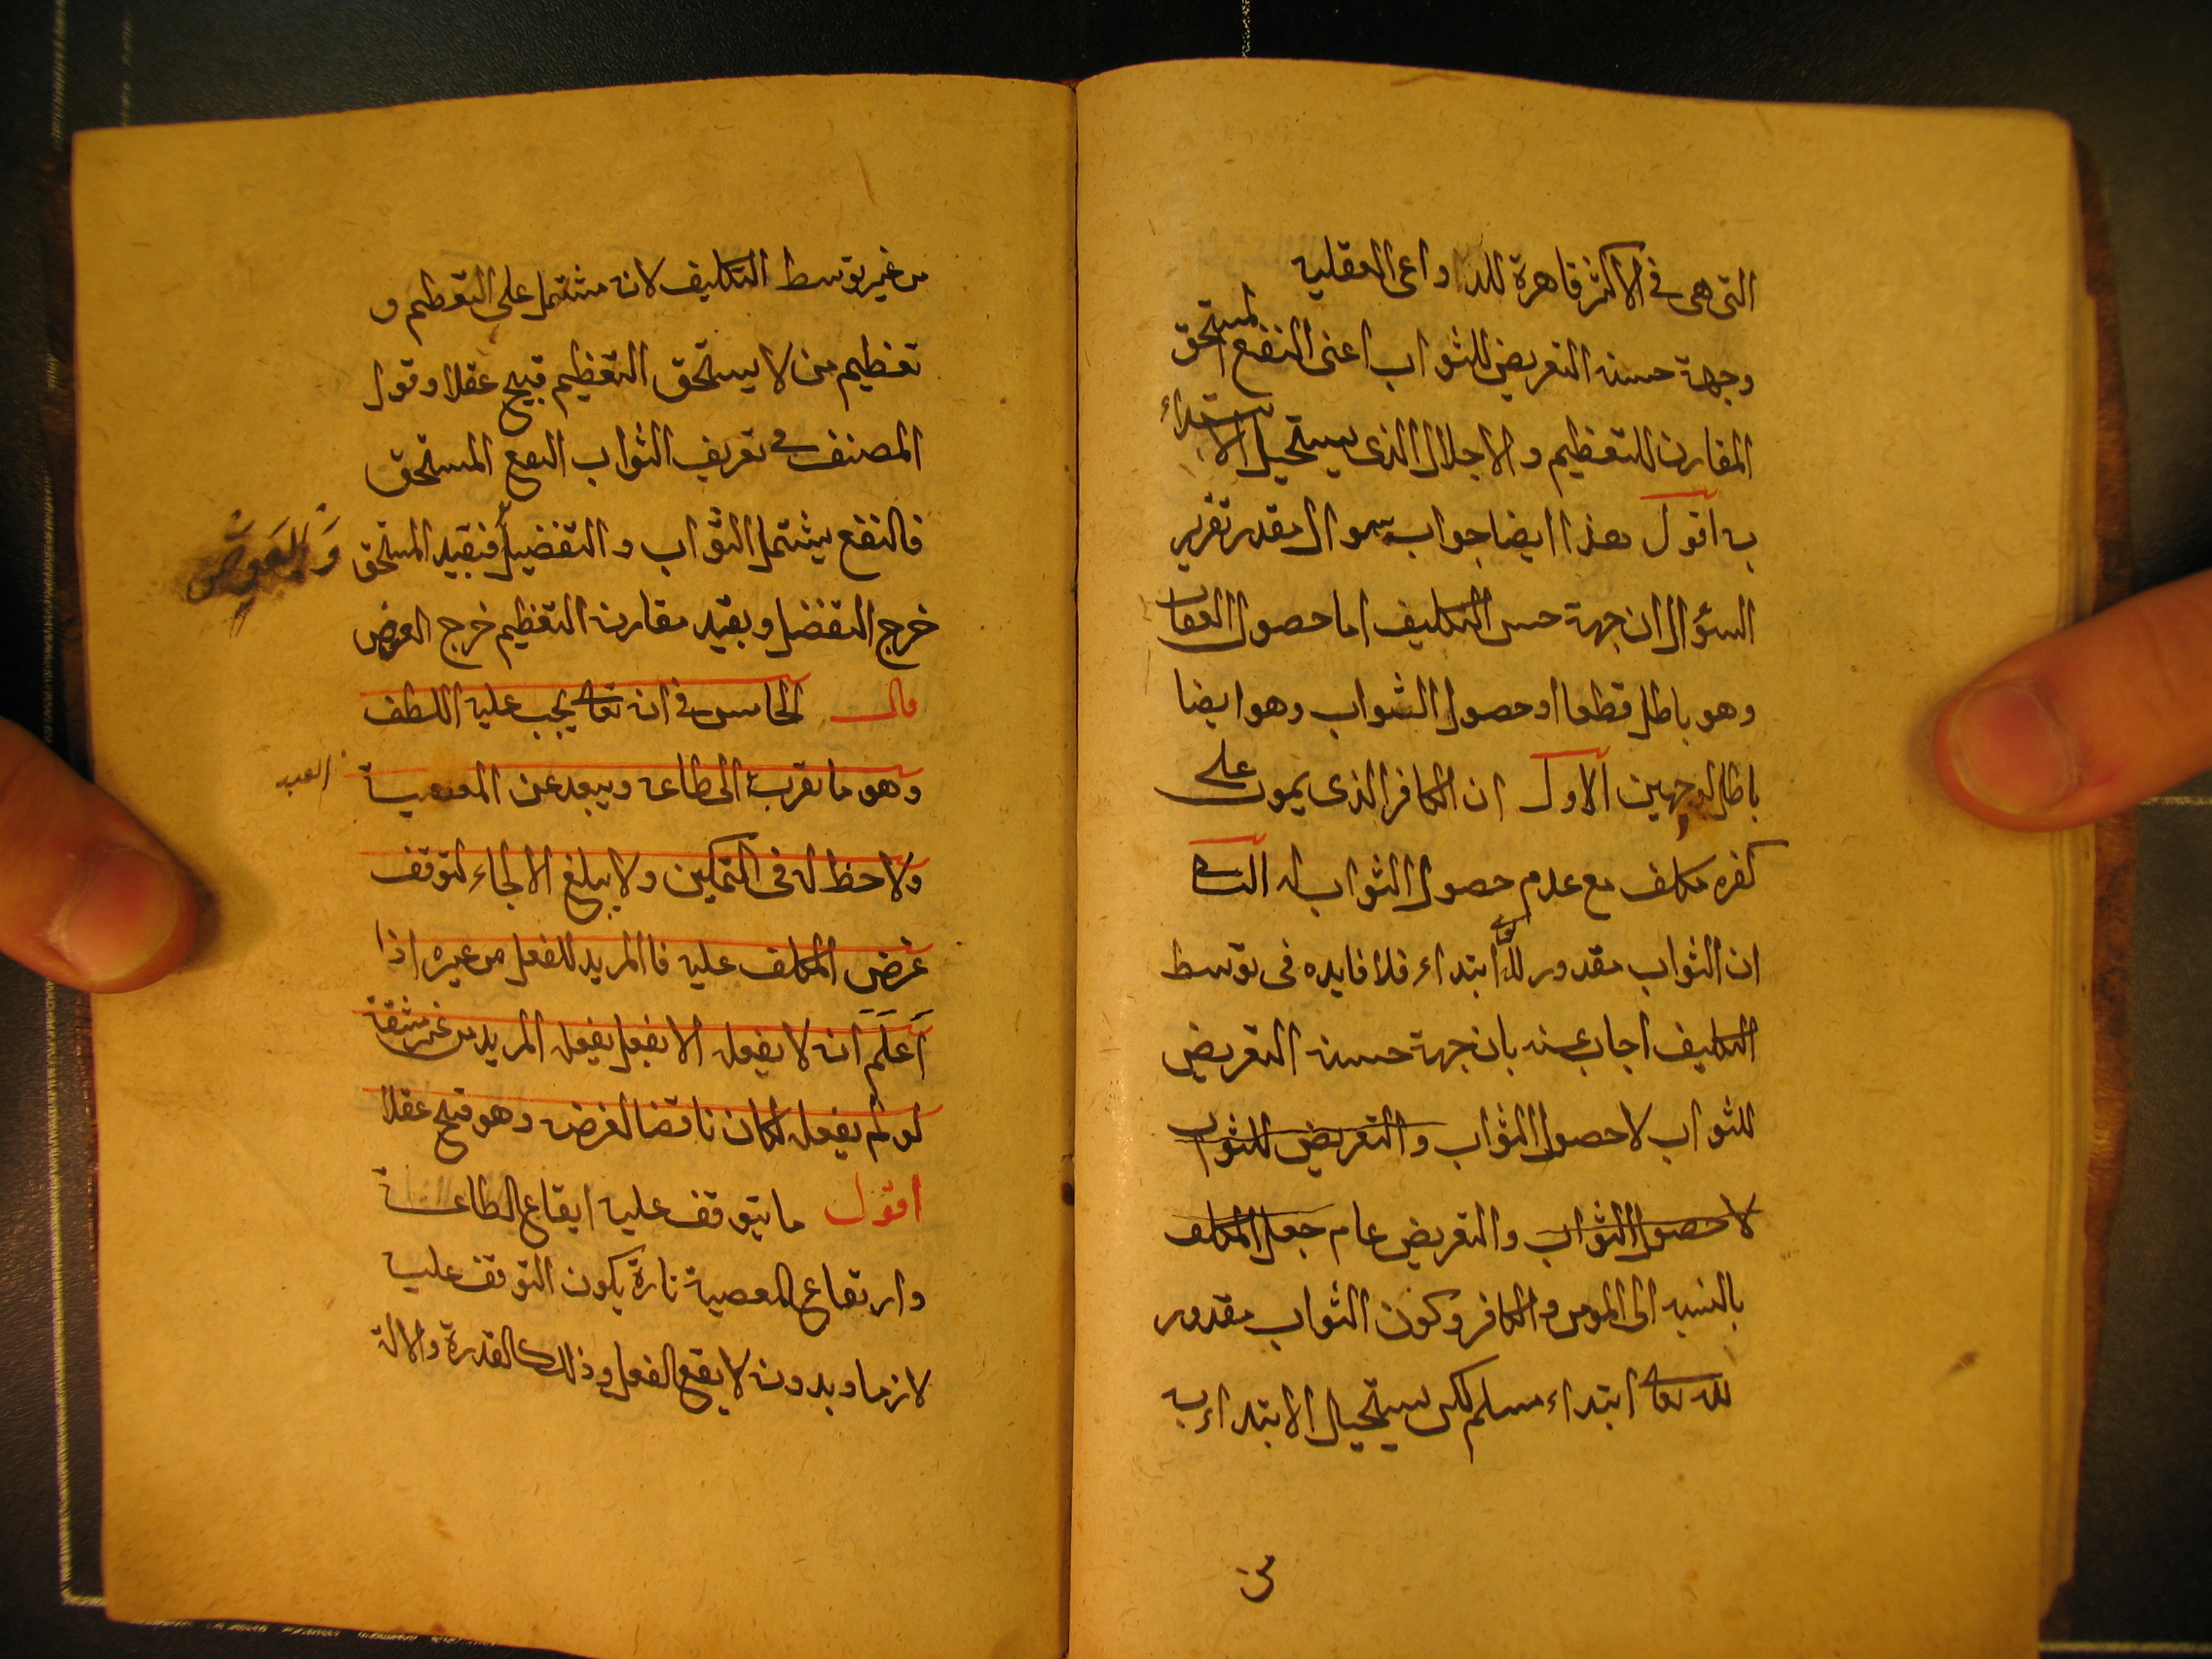 التى هى فى الاكثر قاهرة للدواعى العقليه
وجهة حسنه التعريض للثواب اعنى النفع المستحق
المقارن للتعظيم والاجلال الذى يستحيل الابتداء
به اقول هذا ايضا جواب سوال مقدر تقرير
السؤال ان جهة حسن التكليف اما حصول العقاب
وهو باطل قطعا او حصول الثواب وهو ايضا
باطل لوجهين الاول ان الكافر الذى يموت على
كفره مكلف مع عدم حصول الثواب له الثانى
ان الثواب مقدور لله تعالى ابتداء فلا فايده فى توسط
التكليف اجاب عنه بان جهة حسنه التعريض
للثواب لا حصول الثواب والتعريض للثواب
لا حصول الثواب والتعريض عام جعل المكلف
بالنسبه الى المومن والكافر وكون الثواب مقدور
لله تعالى ابتداء مسلم لكن يستحيل الابتداء به
من
من غير توسط التكليف لانه مشتمل على التعظيم و
تعظيم من لا يستحق التعظيم قبيح عقلا وقول
المصنف فى تعريف الثواب النفع المستحق
فالنفع يشتمل الثواب والتفضيل فبقيد المستحق
والعوض
خرج التفضل وبقيد مقارنه التعظيم خرج العوض
قال الخامس فى انه تعالى يجب عليه اللطف
وهو ما يقرب الى طاعه ويبعد عن المعصية
العبد
ولا حظ له فى التمكين ولا يبلغ الالجاء لتوقف
غرض المكلف عليه فاالمريد للفعل من غيره اذا
اعلم انه لا يفعله الا بفعل يفعله المريد من غير مشقة
لو لم يفعله لكان ناقضا لغرضه وهو قبيح عقلا
اقول ما يتوقف عليه ايقاع الطاعة
وارتفاع المعصية تارة يكون التوقف عليه
لازما وبدونه لا يقع الفعل وذلك كالقدرة والالة